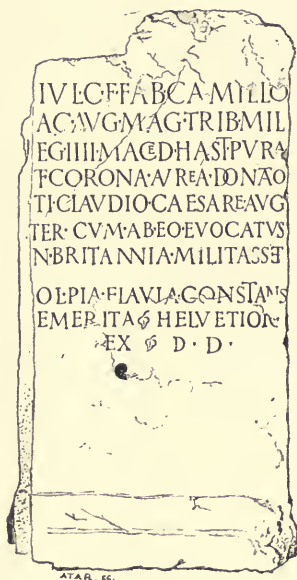 IVL·C·F·FAB·CAMILLO
AC·AVG·MAG·TRIB·MIL
EG·IIII·MACED·HAST·PVRA
T·CORONA·AVREA·DONATO
TI·CLAVDIO·CAESARE·AVG
TER·CVM·AB·EO·EVOCATVS
N·BRITANNIA·MILITASSET
OL·PIA·FLAVIA·CONSTANS
EMERITA HELVETIOR
EX D·D·
ATAR. SG.